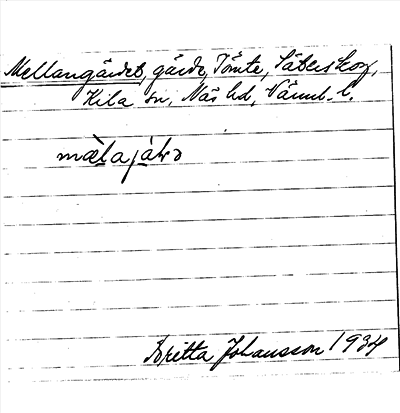 Mellangärdet, gärde, Tomte, Säterskog,
Kila sn, Näs hd, Värml. l.
mæ̀lajáḷɘ
Britta Johansson 1934